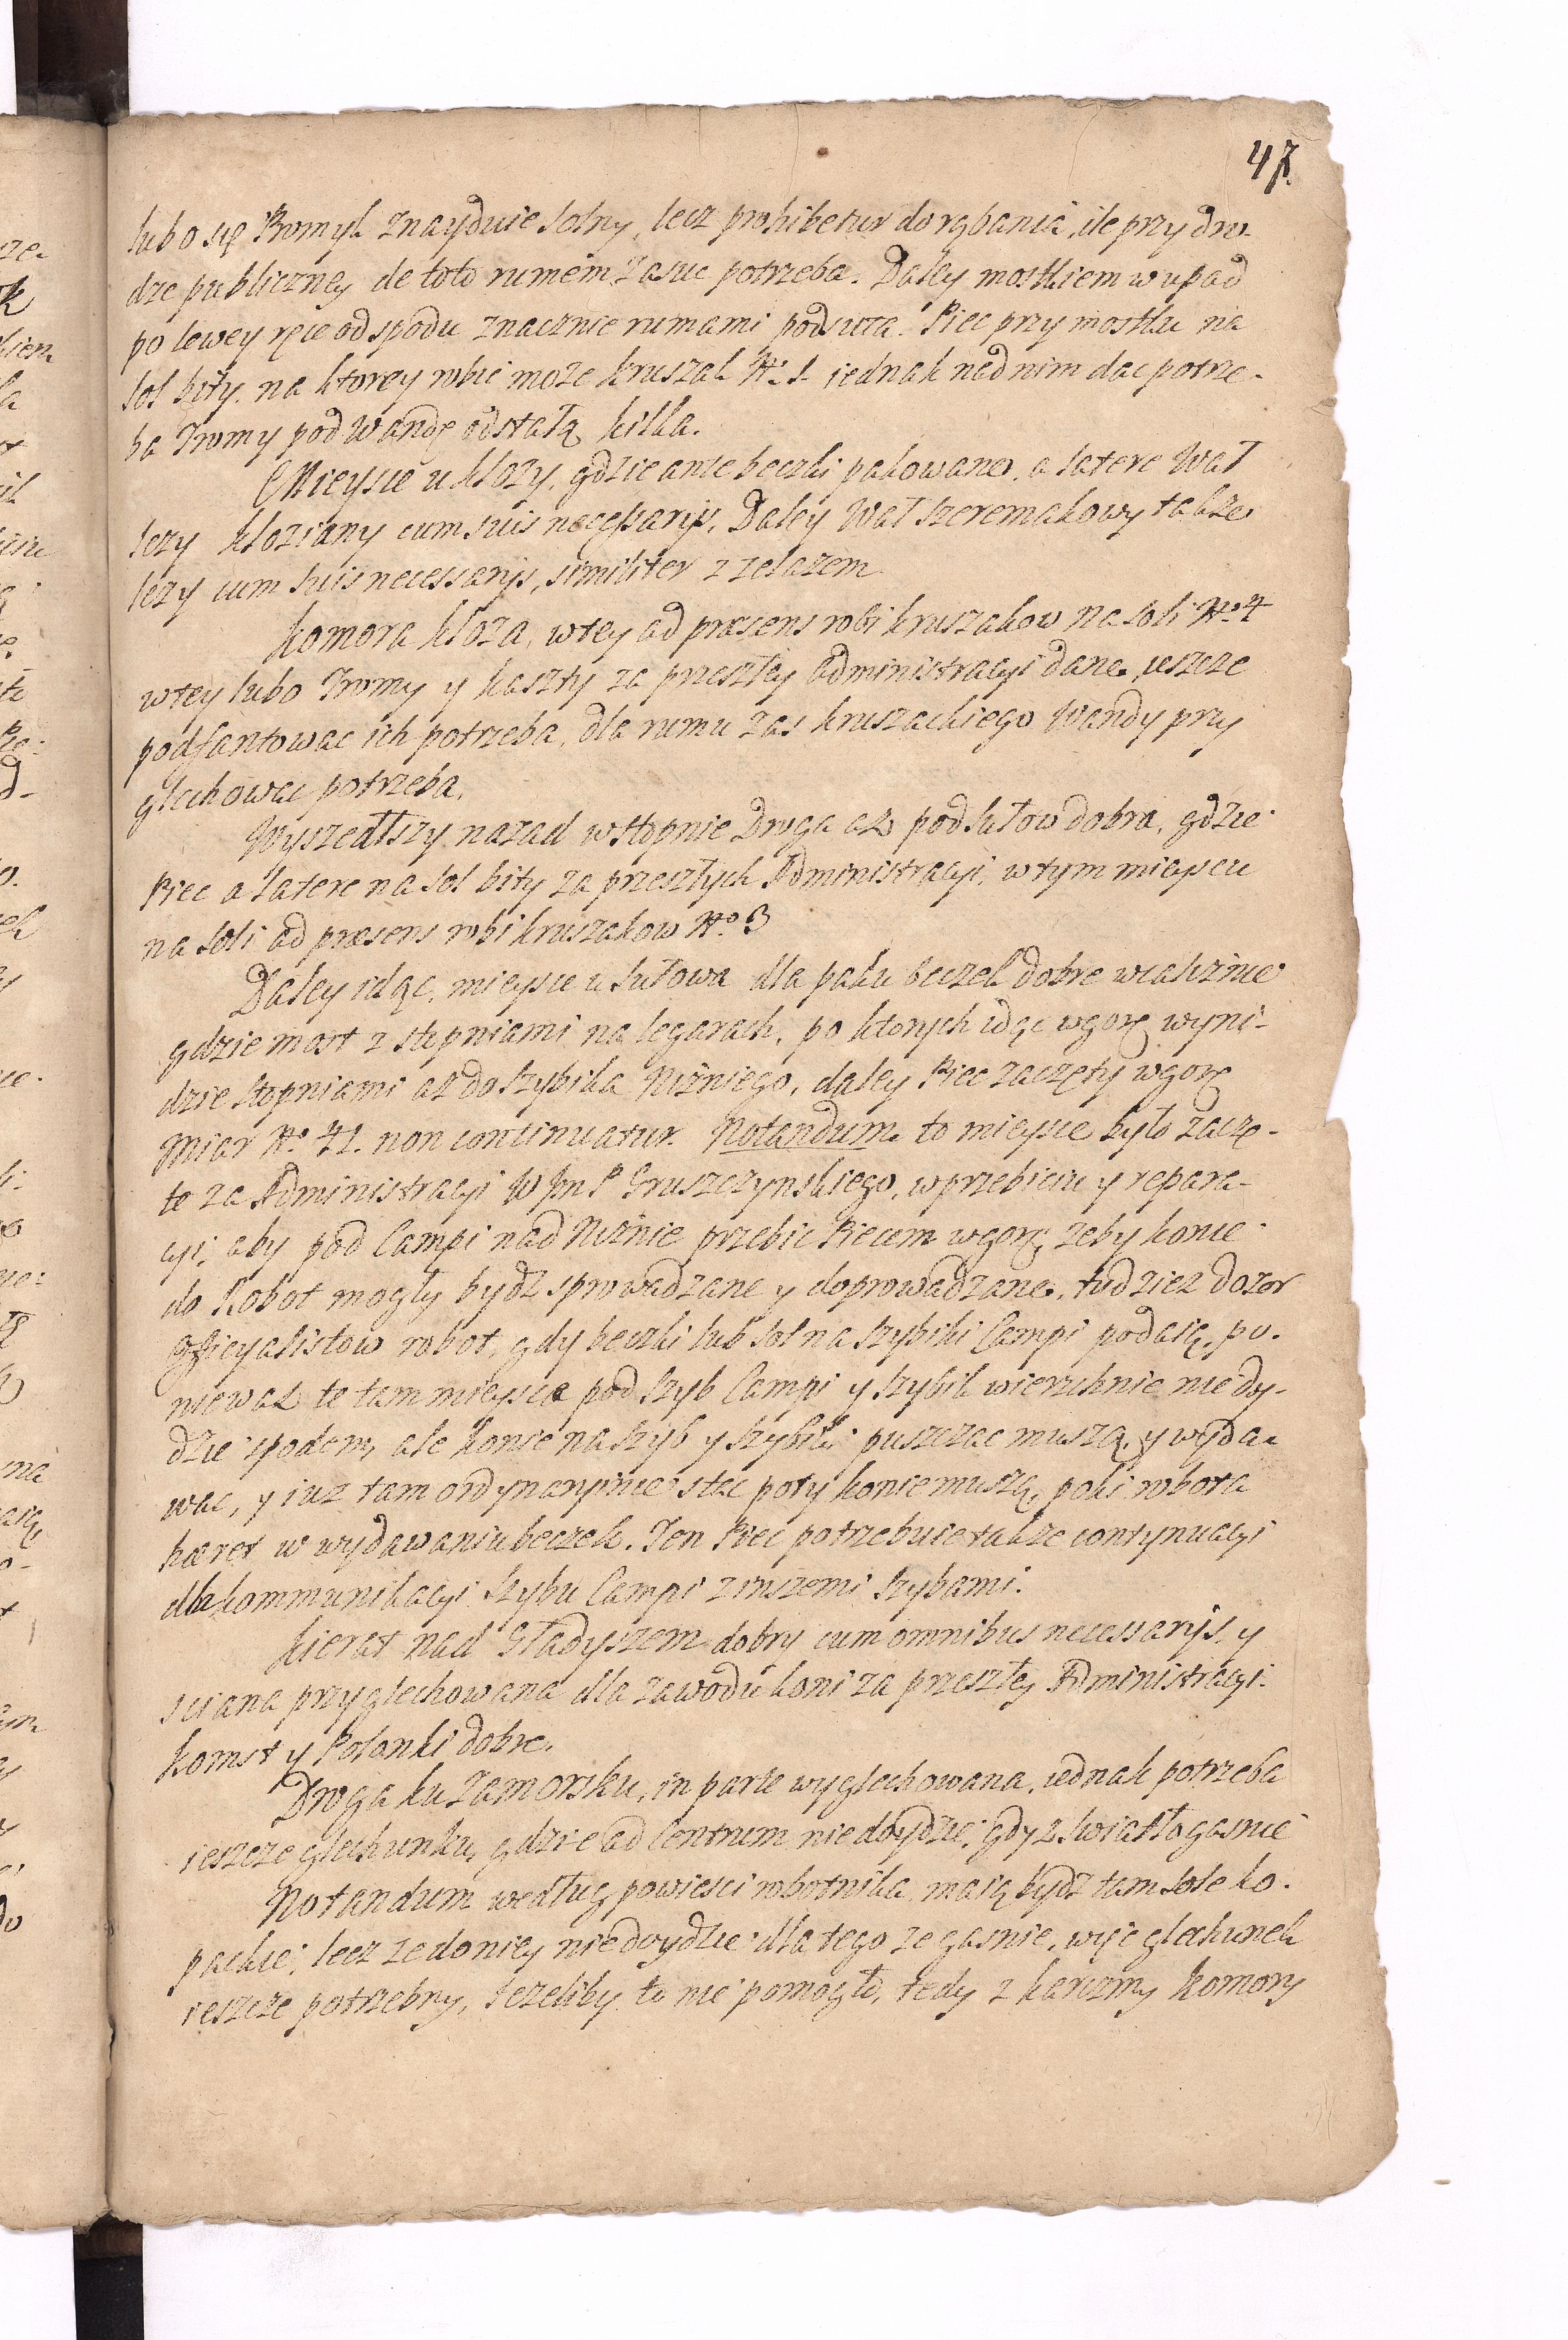 47.
lubo się Promyk znayduie solny, lecz prohibetur do rąbania, ile przy dro-
dze publiczney de toto rumem zasuc potrzeba. Daley mostkiem w upad
po lewey ręce od spodu znacznie rumami podsuta. Piec przy mostku na
sol bity, na ktorey robic moze kruszak N. 1. iednak nad nim dac potrze-
ba Tromy pod Wandę odstałą kilka.
Mieysce u Kłozy, gdzie ante beczki pakowane, a latere Wał
lezy kłoziany cum suis necessarijs, Daley Wał szeremakowy także
lezy cum suis necessarijs, similiter z zelazem
Komora Kłoza, w tey ad præsens robi kruszakow na soli No. 4
w tey lubo Tromy y kaszty za przeszłey Administracyi dane, ieszcze
podfantowac ich potrzeba, dla rumu zas kruszackiego Wandy przy
glechowac potrzeba.
Wyszedłszy nazad w stopnie Droga az pod Sułow dobra, gdzie
Piec a latere na sol bity za przeszłych Administracyi, w tym mieyscu
na soli ad præsens robi kruszakow No. 3
Daley idąc, mieysce u Sułowa dla paku beczek dobre w Kaliźnie
gdzie most z stępniami na legarach, po ktorych idąc w gorę wyni-
dzie stopniami az do Szybika Niżniego, daley Piec zaczęty w gorę
Miar No. 41. non continuatur. Notandum to mieysce było zaczę-
te za Administracyi W Jm P Gruszczynskiego, w przebiciu y repara-
cyi, aby pod Campi nad Niżnie przebic Piecem w gorę, zeby konie
do Robot mogły bydz sprowadzane y doprowadzane, tudziez dozor
Officyalistow robot, gdy beczki lub sol na szybiki Campi podaią, po-
niewaz te tam mieysca pod Szyb Campi y Szybik wierzchnie nie doy-
dzie spodem, ale konie na szyb y szybiki puszczac muszą, y wyda-
wac, y iuz tam ordynaryinie stac poty konie muszą, poki robota
hæret w wydawaniu beczek. Ten Piec potrzebuie takze contynuacyi
dla kommunikacyi Szybu Campi z inszemi szybami.
Kierat nad Gładyszem dobry cum omnibus necessarijs, y
sciana przyglechowana dla zawodu koni za przeszłey Administracyi.
Komst y Polanki dobre.
Droga ku Zamorsku, in parte wyglechowana, iednak potrzeba
ieszcze glechunku, gdzie ad Centrum nie doydzie, gdyz swiatło gasnie
Notandum według powiesci robotnika, maią bydz tam sole ko-
packie, lecz ze do niey nie doydzie dla tego ze gasnie, więc glechunek
ieszcze potrzebny, Jezeliby to nie pomogło, tedy z karczmy Komory